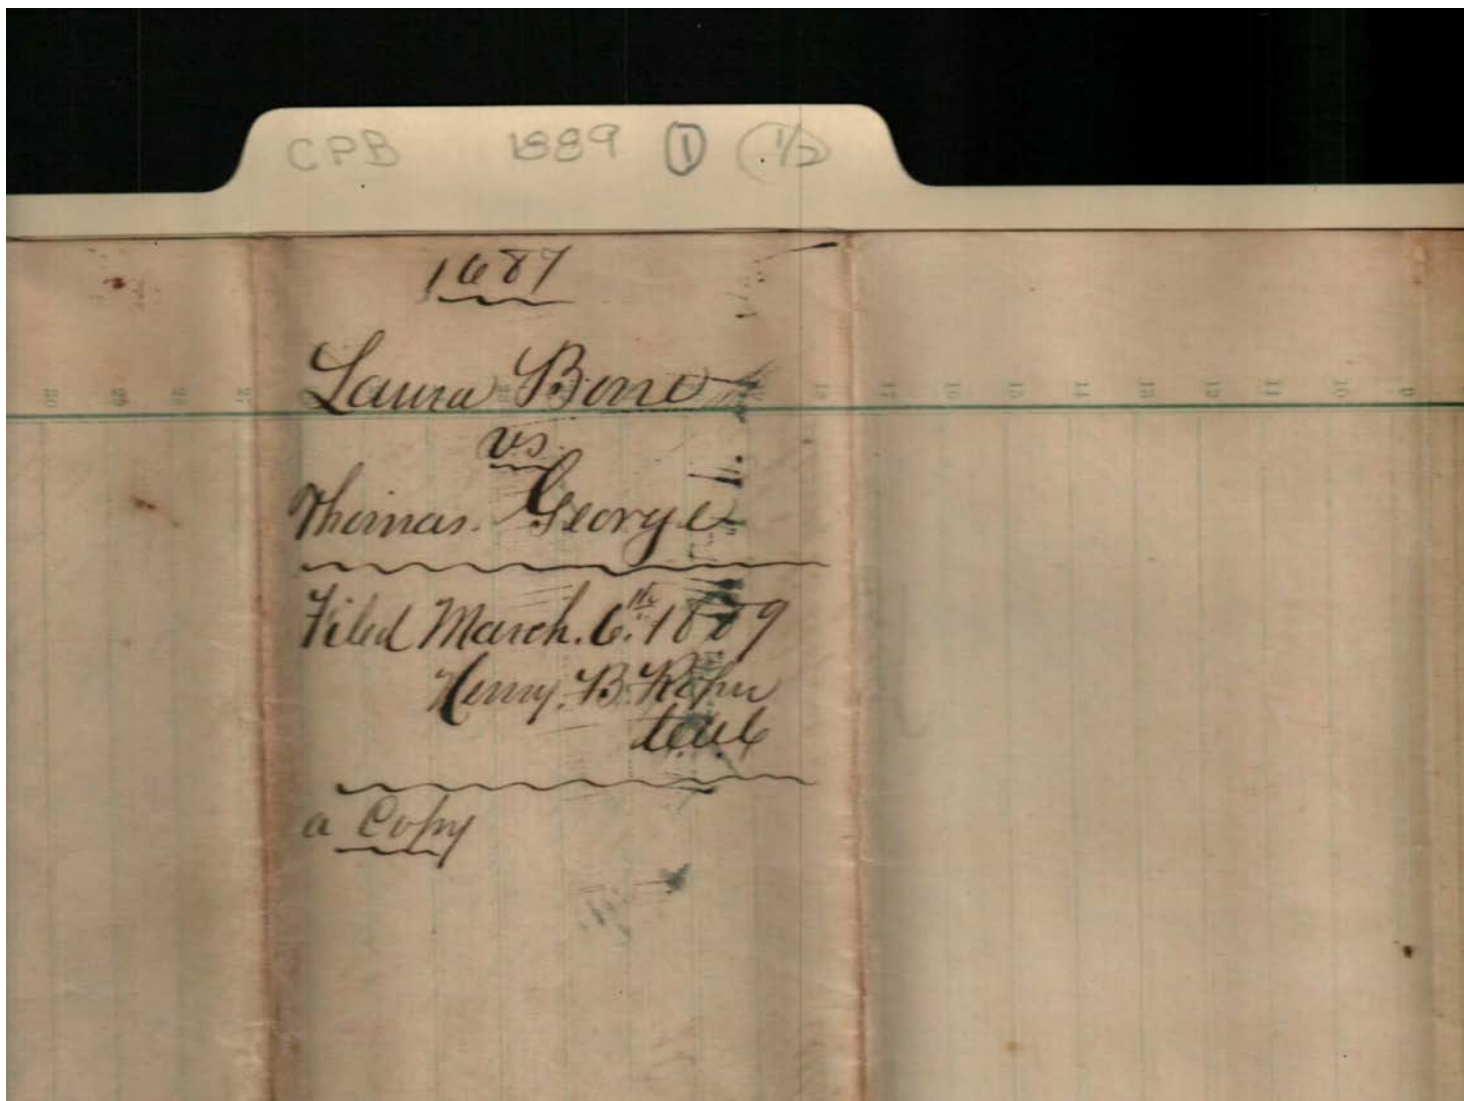 CPB 1889 1 (1/2)
1687
Laura Bone
vs.
Thomas George
Filed March. 6th 1889
Henry. B.
a Copy